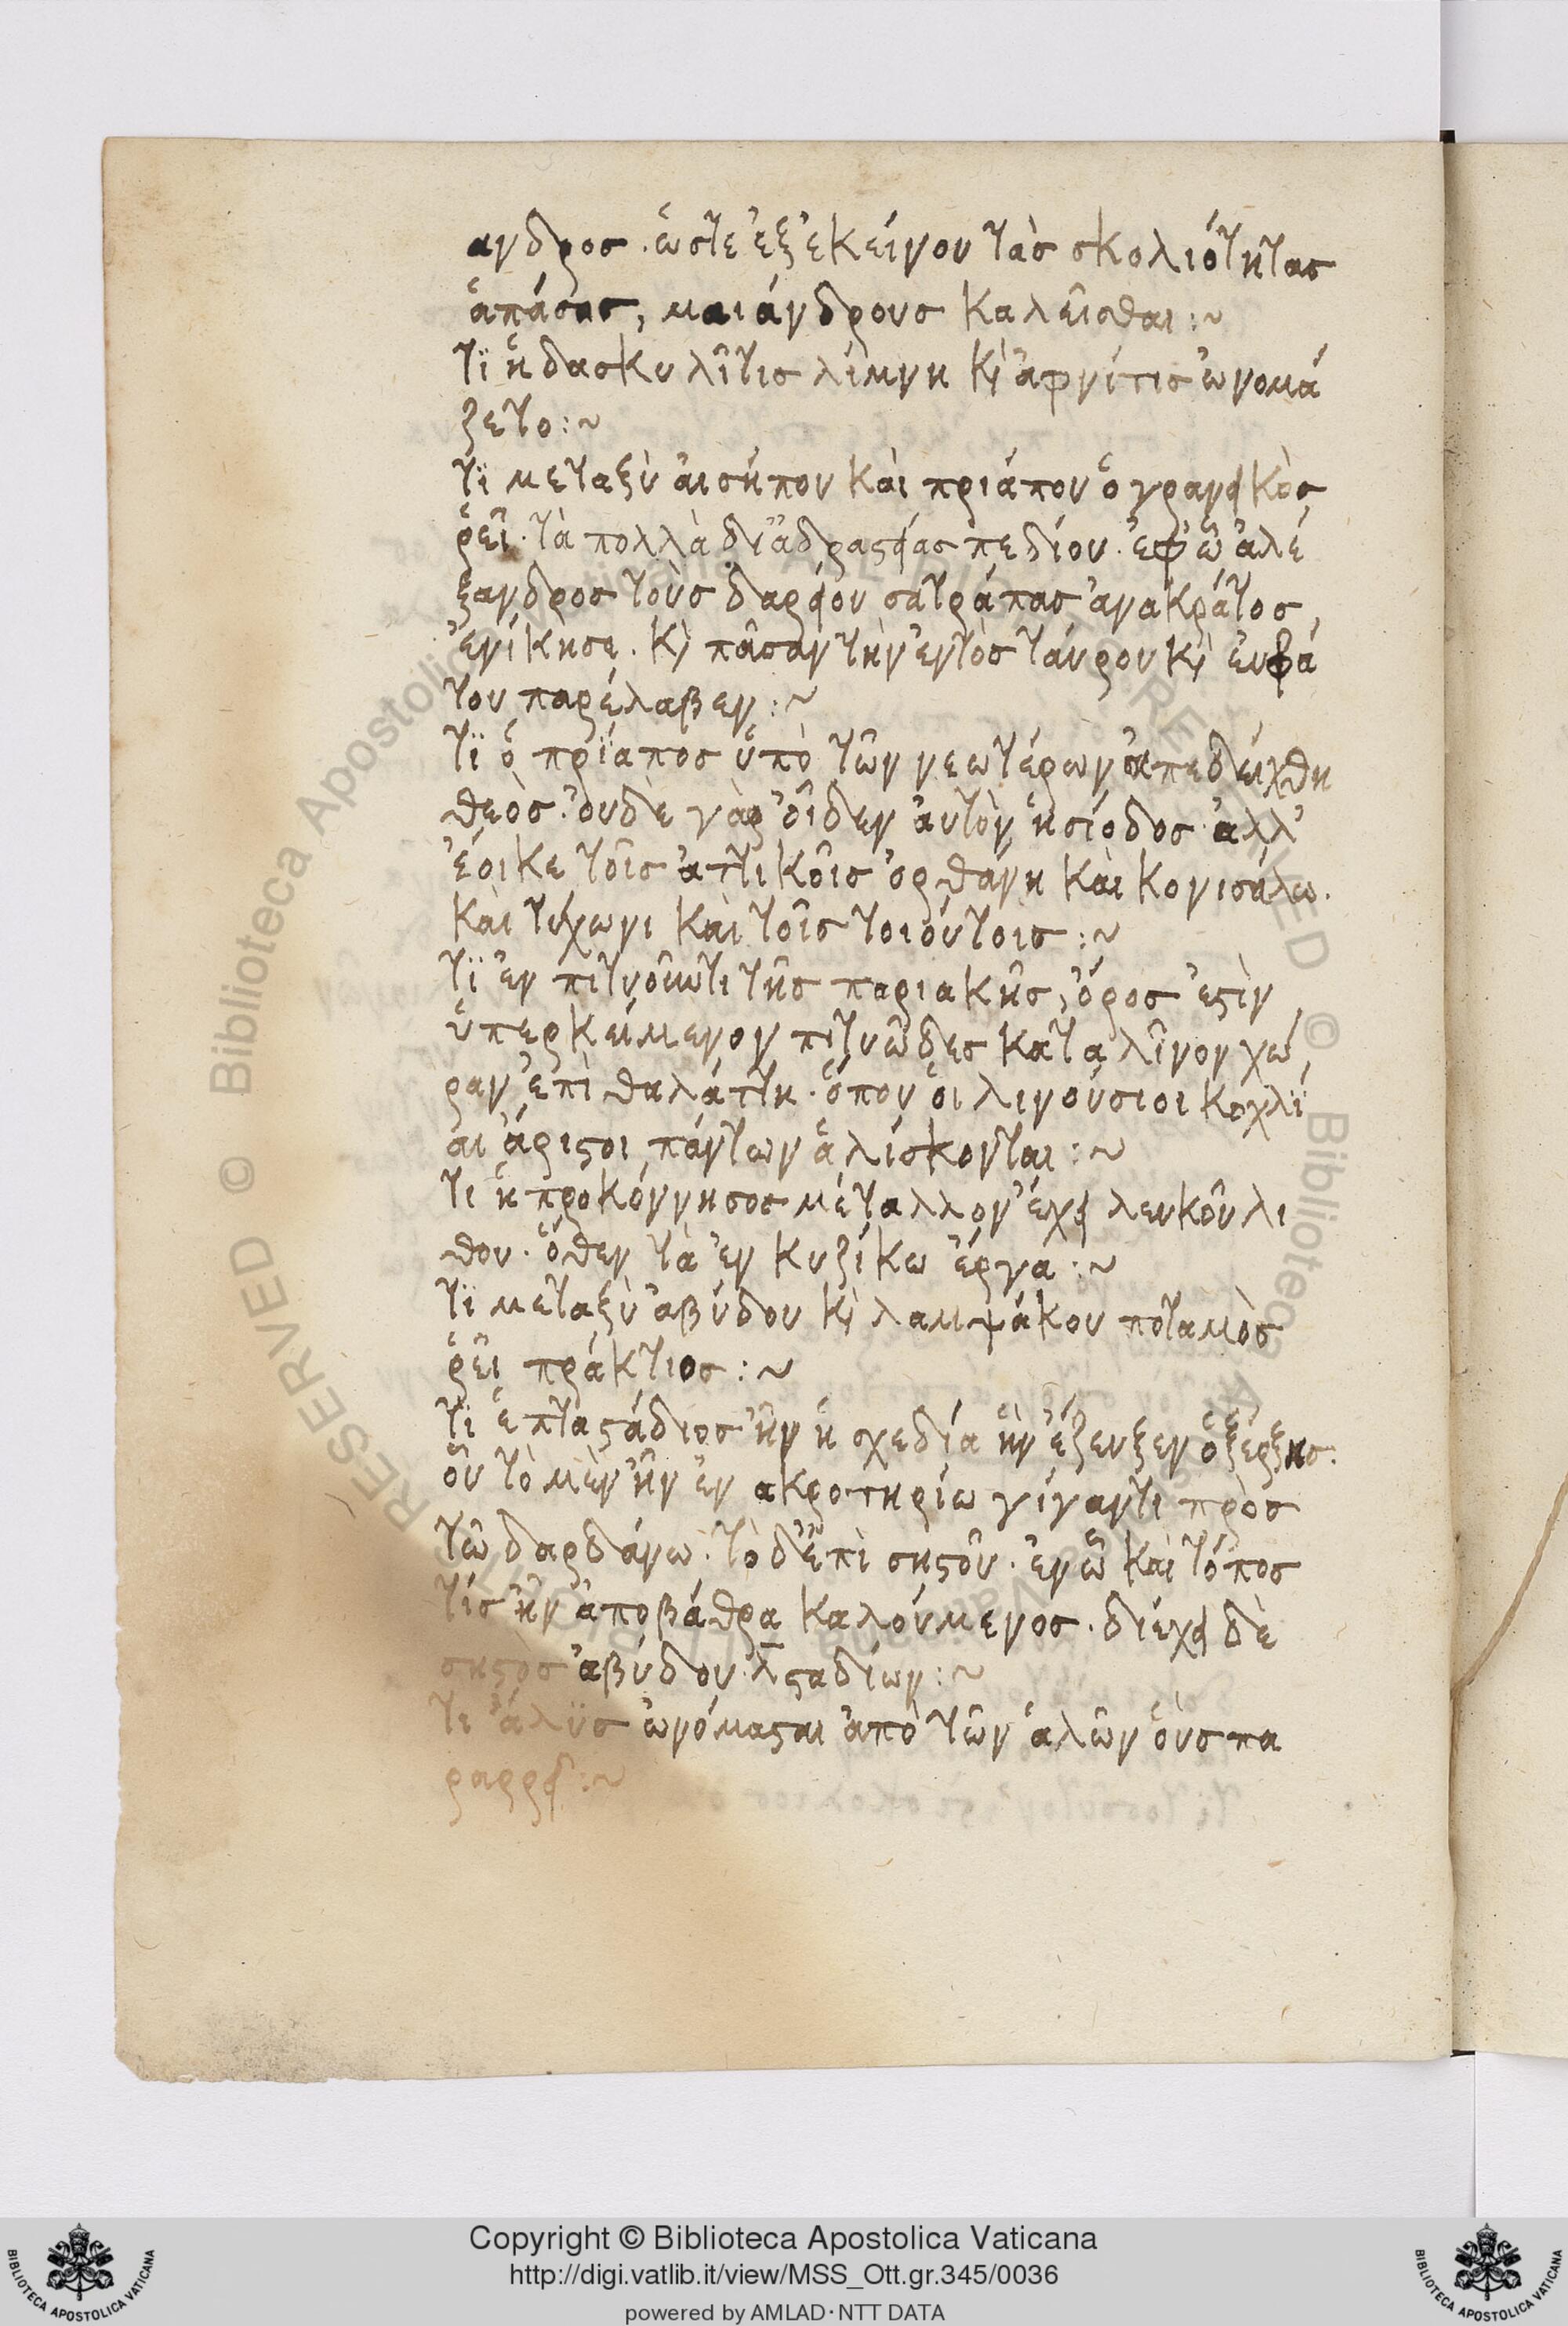 ανδρος· ὥστε ἐξ ἐκείνου τὰς σκολιότητας
ἁπάσας, μαιάνδρους καλεῖσθαι:~
τϊ ἡ δασκυλῖτις λίμνη κ̀ ἀφνίτις ὠνομά
ζετο:~
τϊ μεταξὺ αἰσήπου καὶ πριάπου ὁ γρανεικὸς
ῥεῖ· τὰ πολλὰ δι' ἀδραστείας πεδίου· ἐφ' ὧ ἀλέ
ξανδρος τοὺς δαρείου σατράπας ἀνακράτος,
ἐνίκησε. κ̀ πᾶσαν τὴν ἐντὸς ταύρου κ̀ ἐυφρά
του παρέλαβεν:~
τϊ ὁ πρίαπος ὑπὸ τῶν νεωτέρων ἀπεδείχθη
θεὸς· οὐδὲ γὰρ οἶδεν ἀυτὸν ἡσίοδος· ἀλλ'
ἔοικε τοῖς ἀττικοῖς ὀρθάνη καὶ κονισάλω.
καὶ τύχωνι καὶ τοῖς τοιούτοις:~
τϊ ἐν πιτυοῦντι τῆς παριακῆς, ὄρος ἐστὶν
ὑπερκείμενον πιτυῶδες κατα λῖνον χώ
ραν ἐπὶ θαλάττη· ὅπου οἱ λινούσιοι κοχλί
αι ἄριστοι πάντων ἁλίσκονται:~
τι ἡ προκόννησος μέταλλον ἔχει λευκοῦ λι
θου· ὅθεν τὰ ἐν κυζίκω ἔργα:~
τϊ μεταξὺ ἀβύδου κ̀ λαμψάκου ποταμὸς
ῥεῖ πράκτιος:~
τϊ ἑπταστάδιος ἦν ἡ σχεδία ἣν ἔζευξεν ὁ ξέρξης.
οὗ τὸ μὲν ἦν ἐν ακροτηρίω γίγαντι πρὸς
τῶ δαρδάνω· τὸ δ' ἐπὶ σηστοῦ· ἐν ὧ καὶ τόπος
τίς ἦν ἀποβάθρα καλούμενος· διέχει δὲ
σηστὸς ἀβύδου λ̅ σταδίων:~
τι ἅλυς ὠνόμασται ἀπὸ τῶν ἁλῶν οὓς πα
ραρρεῖ:~
Copyright © Biblioteca Apostolica Vaticana
http://digi.vatlib.it/view/MSS_Ott.gr.345/0036
powered by AMLAD·NTT DATA